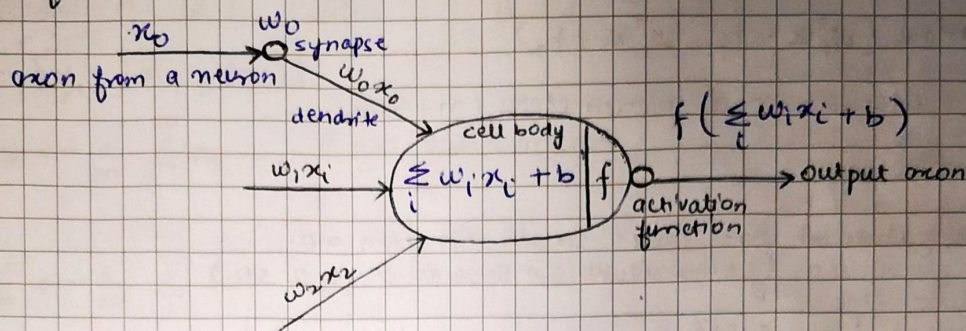 x₀
w₀
synapse
axon from a neuron
w₀x₀
dendrite
cell body
f(Σᵢ wᵢxᵢ + b)
w₁x₁
Σᵢ wᵢxᵢ + b
f
output axon
activation
function
w₂x₂